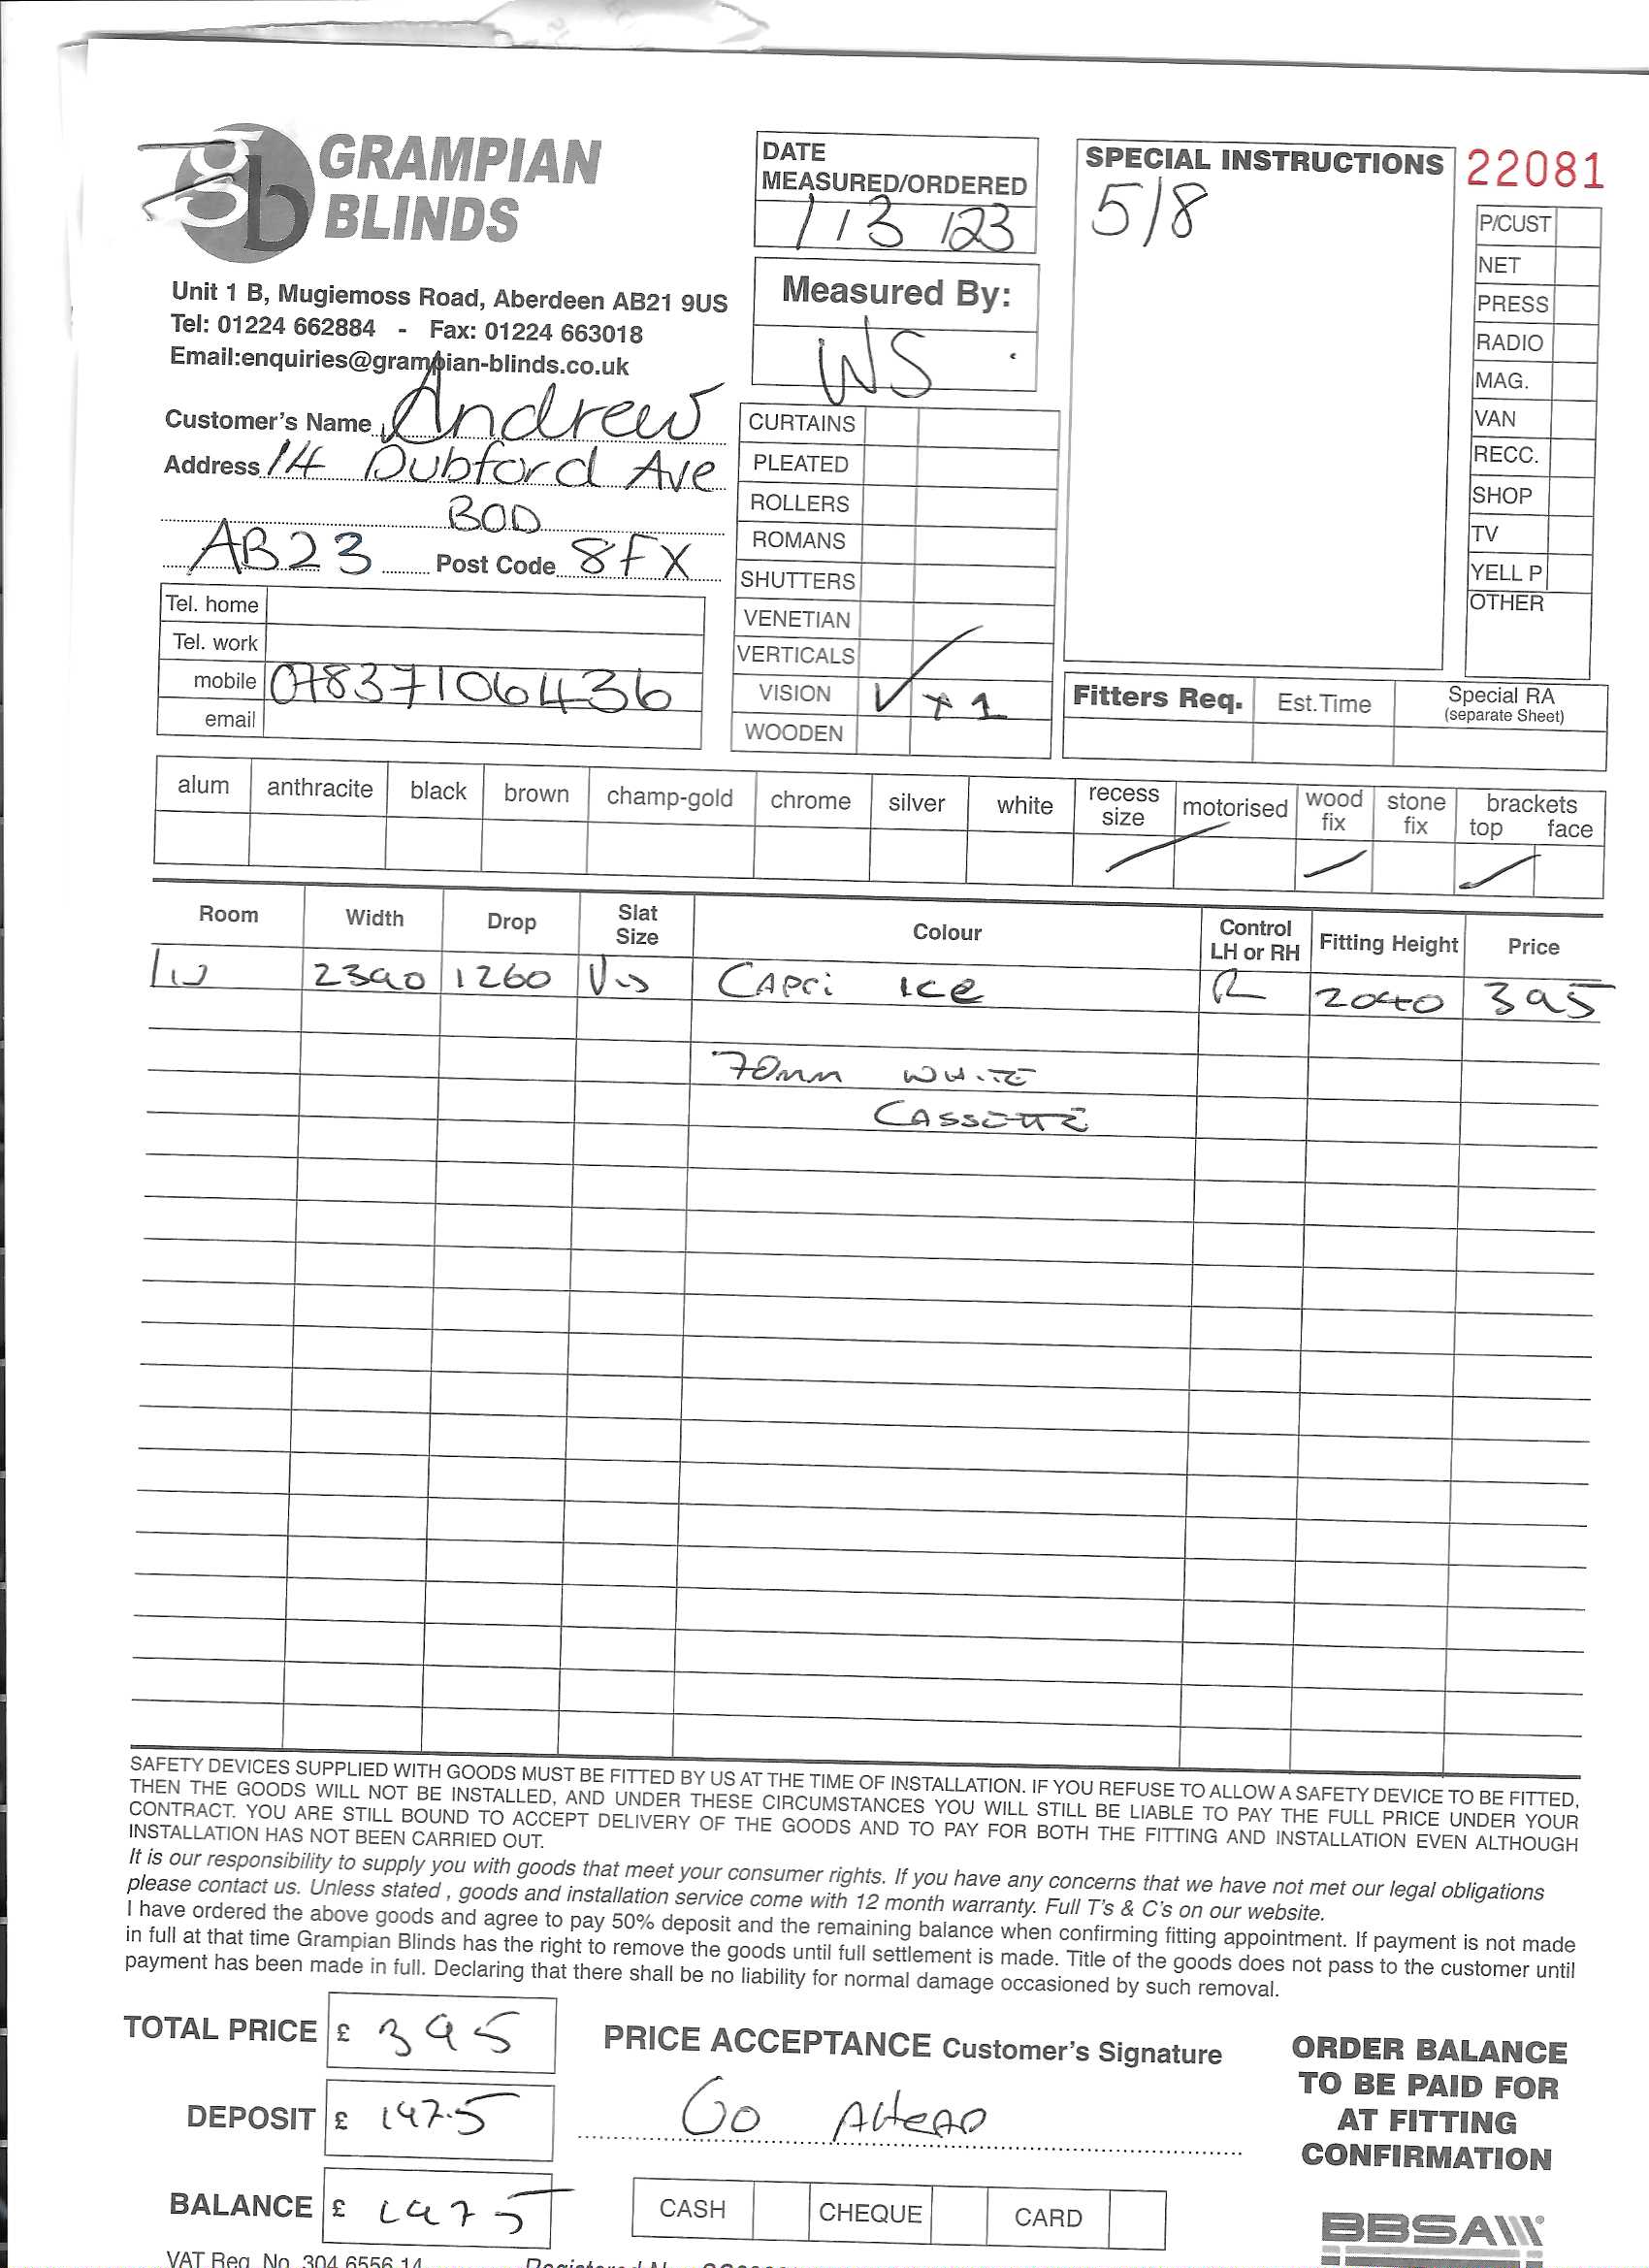 GRAMPIAN
BLINDS
Unit 1 B, Mugiemoss Road, Aberdeen AB21 9US
Tel: 01224 662884 - Fax: 01224 663018
Email:enquiries@grampian-blinds.co.uk
Customer's Name Andrew
Address 14 Dubford Ave
BOD
AB23 Post Code 8FX
Tel. home
Tel. work
mobile 07837106436
email
DATE
MEASURED/ORDERED
1/3/23
Measured By:
WS
CURTAINS
PLEATED
ROLLERS
ROMANS
SHUTTERS
VENETIAN
VERTICALS
VISION ✓ x 1
WOODEN
SPECIAL INSTRUCTIONS
5/8
22081
P/CUST
NET
PRESS
RADIO
MAG.
VAN
RECC.
SHOP
TV
YELL P
OTHER
Fitters Req. Est.Time Special RA
(separate Sheet)
alum anthracite black brown champ-gold chrome silver white recess size motorised wood fix stone fix brackets top face
Room Width Drop Slat Size Colour Control LH or RH Fitting Height Price
2390 1260 Vis Capri Ice R 2040 395
70mm WHITE
CASSETTE
SAFETY DEVICES SUPPLIED WITH GOODS MUST BE FITTED BY US AT THE TIME OF INSTALLATION. IF YOU REFUSE TO ALLOW A SAFETY DEVICE TO BE FITTED,
THEN THE GOODS WILL NOT BE INSTALLED, AND UNDER THESE CIRCUMSTANCES YOU WILL STILL BE LIABLE TO PAY THE FULL PRICE UNDER YOUR
CONTRACT. YOU ARE STILL BOUND TO ACCEPT DELIVERY OF THE GOODS AND TO PAY FOR BOTH THE FITTING AND INSTALLATION EVEN ALTHOUGH
INSTALLATION HAS NOT BEEN CARRIED OUT.
It is our responsibility to supply you with goods that meet your consumer rights. If you have any concerns that we have not met our legal obligations
please contact us. Unless stated , goods and installation service come with 12 month warranty. Full T's & C's on our website.
I have ordered the above goods and agree to pay 50% deposit and the remaining balance when confirming fitting appointment. If payment is not made
in full at that time Grampian Blinds has the right to remove the goods until full settlement is made. Title of the goods does not pass to the customer until
payment has been made in full. Declaring that there shall be no liability for normal damage occasioned by such removal.
TOTAL PRICE £ 395
DEPOSIT £ 197.5
BALANCE £ 1975
PRICE ACCEPTANCE Customer's Signature
Go AHeAD
CASH CHEQUE CARD
ORDER BALANCE
TO BE PAID FOR
AT FITTING
CONFIRMATION
BBSA
VAT Reg. No. 304 6556 14